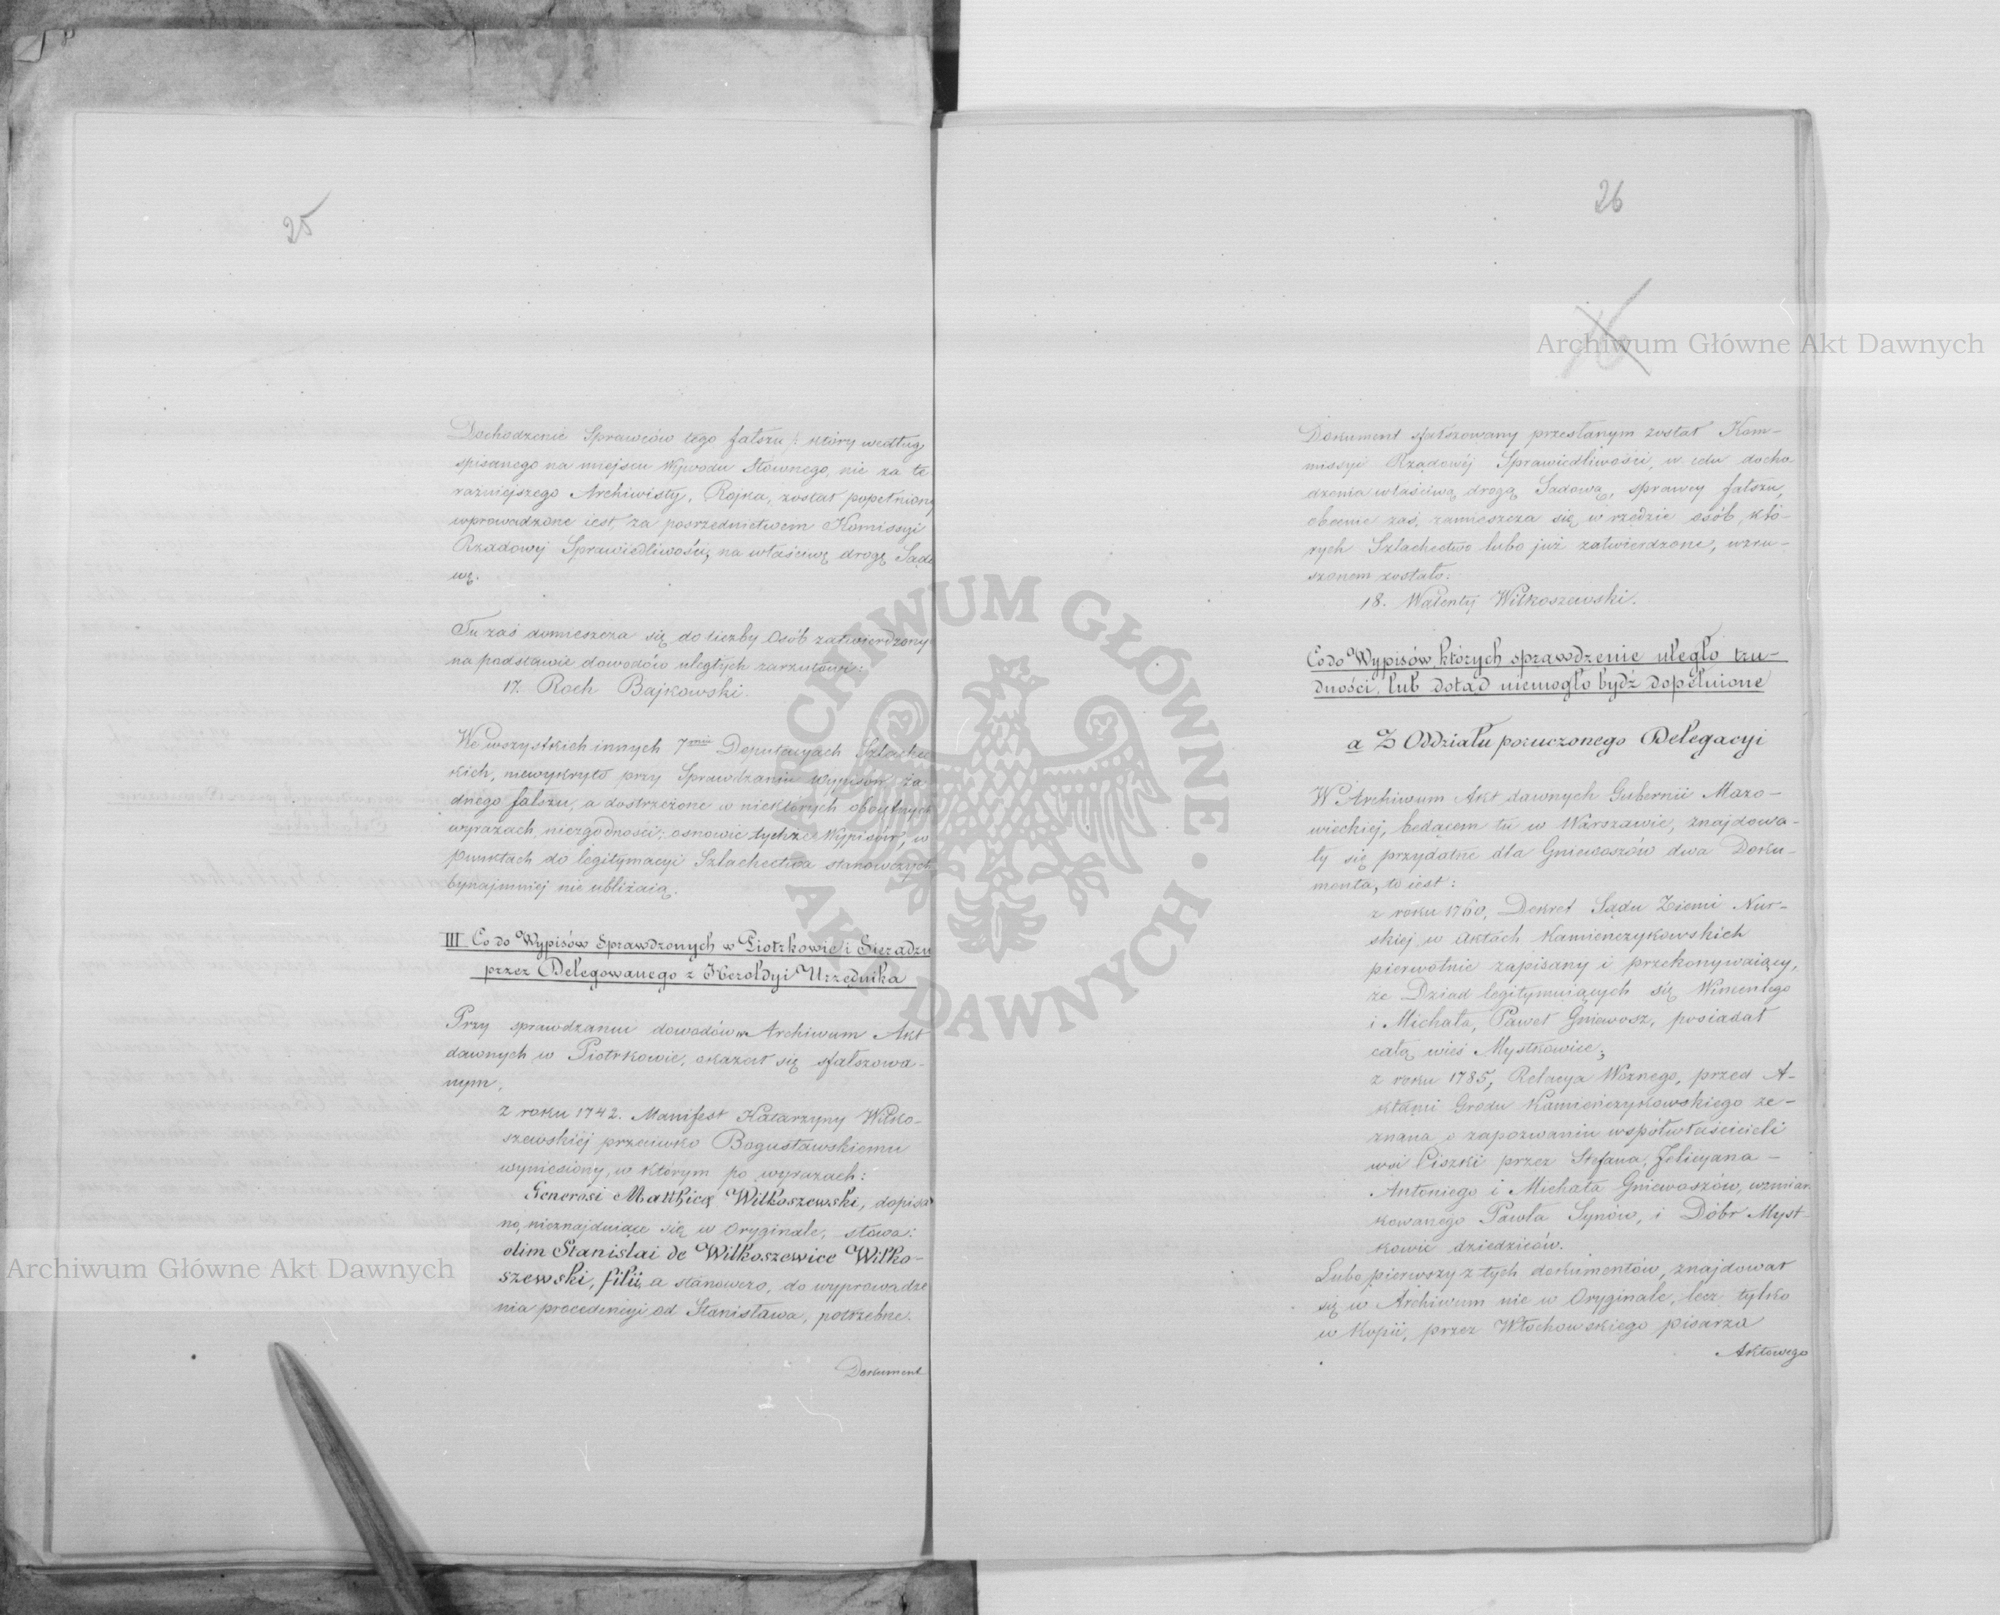 25
Dochodzenie Sprawców tego fałszu /: który według
spisanego na miejscu Wywodu Słownego, nie za te
raźniejszego Archiwisty, Rojka, został popełniony
wprowadzone iest za pośrednictwem Kommissyi
Rządowy Sprawiedliwości, na właściwę drogę Sądo
wę.
Tu zaś domieszcza się do liczby Osób zatwierdzony
na podstawie dowodów uległych zarzutowi:
17. Roch Bajkowski.
We wszystkich innych 7miu Deputacyach Szlache
ckich, niewykryto przy Sprawdzaniu Wypisów ża-
dnego fałszu, a dostrzeżone w niektórych obojętnych
wyrazach, niezgodności; osnowie tychże Wypisów, w
punktach do legitymacyi Szlachectwa stanowczych
bynajmniej nie ubliżaią.
III Co do Wypisów Sprawdzonych w Piotrkowie i Sieradzu
przez Delegowanego z Heroldyi Urzędnika
Przy sprawdzaniu dowodów w Archiwum Akt
dawnych w Piotrkowie, okazał się sfałszowa-
nym,
z roku 1742. Manifest Katarzyny Wilko-
szewskiej przeciwko Bogusławskiemu
wyniesiony, w którym po wyrazach:
Generosi Matthiæ Wilkoszewski, dopisa
no, nieznajduiące się w Oryginale, słowa:
olim Stanislai de Wilkoszewice Wilko-
szewski, filii, a stanowczo, do wyprowadze
nia procedencyi od Stanisława, potrzebne.
Dokument
26
Dokument sfałszowany przesłanym został Kom-
missyi Rządowéj Sprawiedliwości, w celu docho-
dzenia właściwą drogą Sądową, sprawcy fałszu,
obecnie zaś, zamieszcza się w rzędzie osób, któ-
rych Szlachectwo lubo już zatwierdzone, wzru-
szonem zostało:
18. Walenty Wilkoszewski.
Co do Wypisów, których sprawdzenie uległo tru-
dności, lub dotąd niemogło bydź dopełnione
a Z Oddziału poruczonego Delegacyi
W Archiwum Akt dawnych Gubernii Mazo-
wieckiej, będącem tu w Warszawie, znajdowa-
ły się przydatne dla Gniewoszów dwa Doku-
menta, to iest:
z roku 1760, Dekret Sądu Ziemi Nur-
skiej w Aktach Kamieńczykowskich
pierwotnie zapisany i przekonywaiący,
że Dziad legitymuiących się Wincentego
i Michała, Paweł Gniewosz, posiadał
całą wieś Mystkowiec;
z roku 1785, Relacya Woznego, przed A-
ktami Grodu Kamieńczykowskiego ze-
znana o zapozwaniu współwłaścicieli
wsi Ciszki przez Stefana, Felicyana-
Antoniego i Michała Gniewoszów, wzmian
kowanego Pawła Synów, i Dóbr Myst-
kowic dziedziców.
Lubo pierwszy z tych dokumentów, znajdował
się w Archiwum nie w Oryginale, lecz tylko
w Kopii, przez Włochowskiego pisarza
Aktowego
Archiwum Główne Akt Dawnych
Archiwum Główne Akt Dawnych
ARCHIWUM GŁÓWNE · AKT DAWNYCH ·